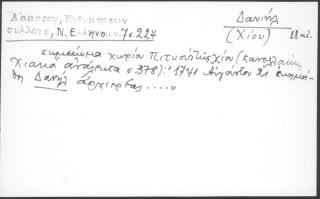 Λάμπρου, Ενθυμήσεων
συλλογή, Ν. Ελληνομν. 7ος 224
Δανιήλ
(Χίου) 18 αι.
σημείωμα χωρίου Πιτυούς Χίου (Κανελλάκη
Χιακά ανάλεκτα σ 378): "1741 Αυγούστου 21 εκοιμή-
θη Δανιήλ αρχιερεας ....."